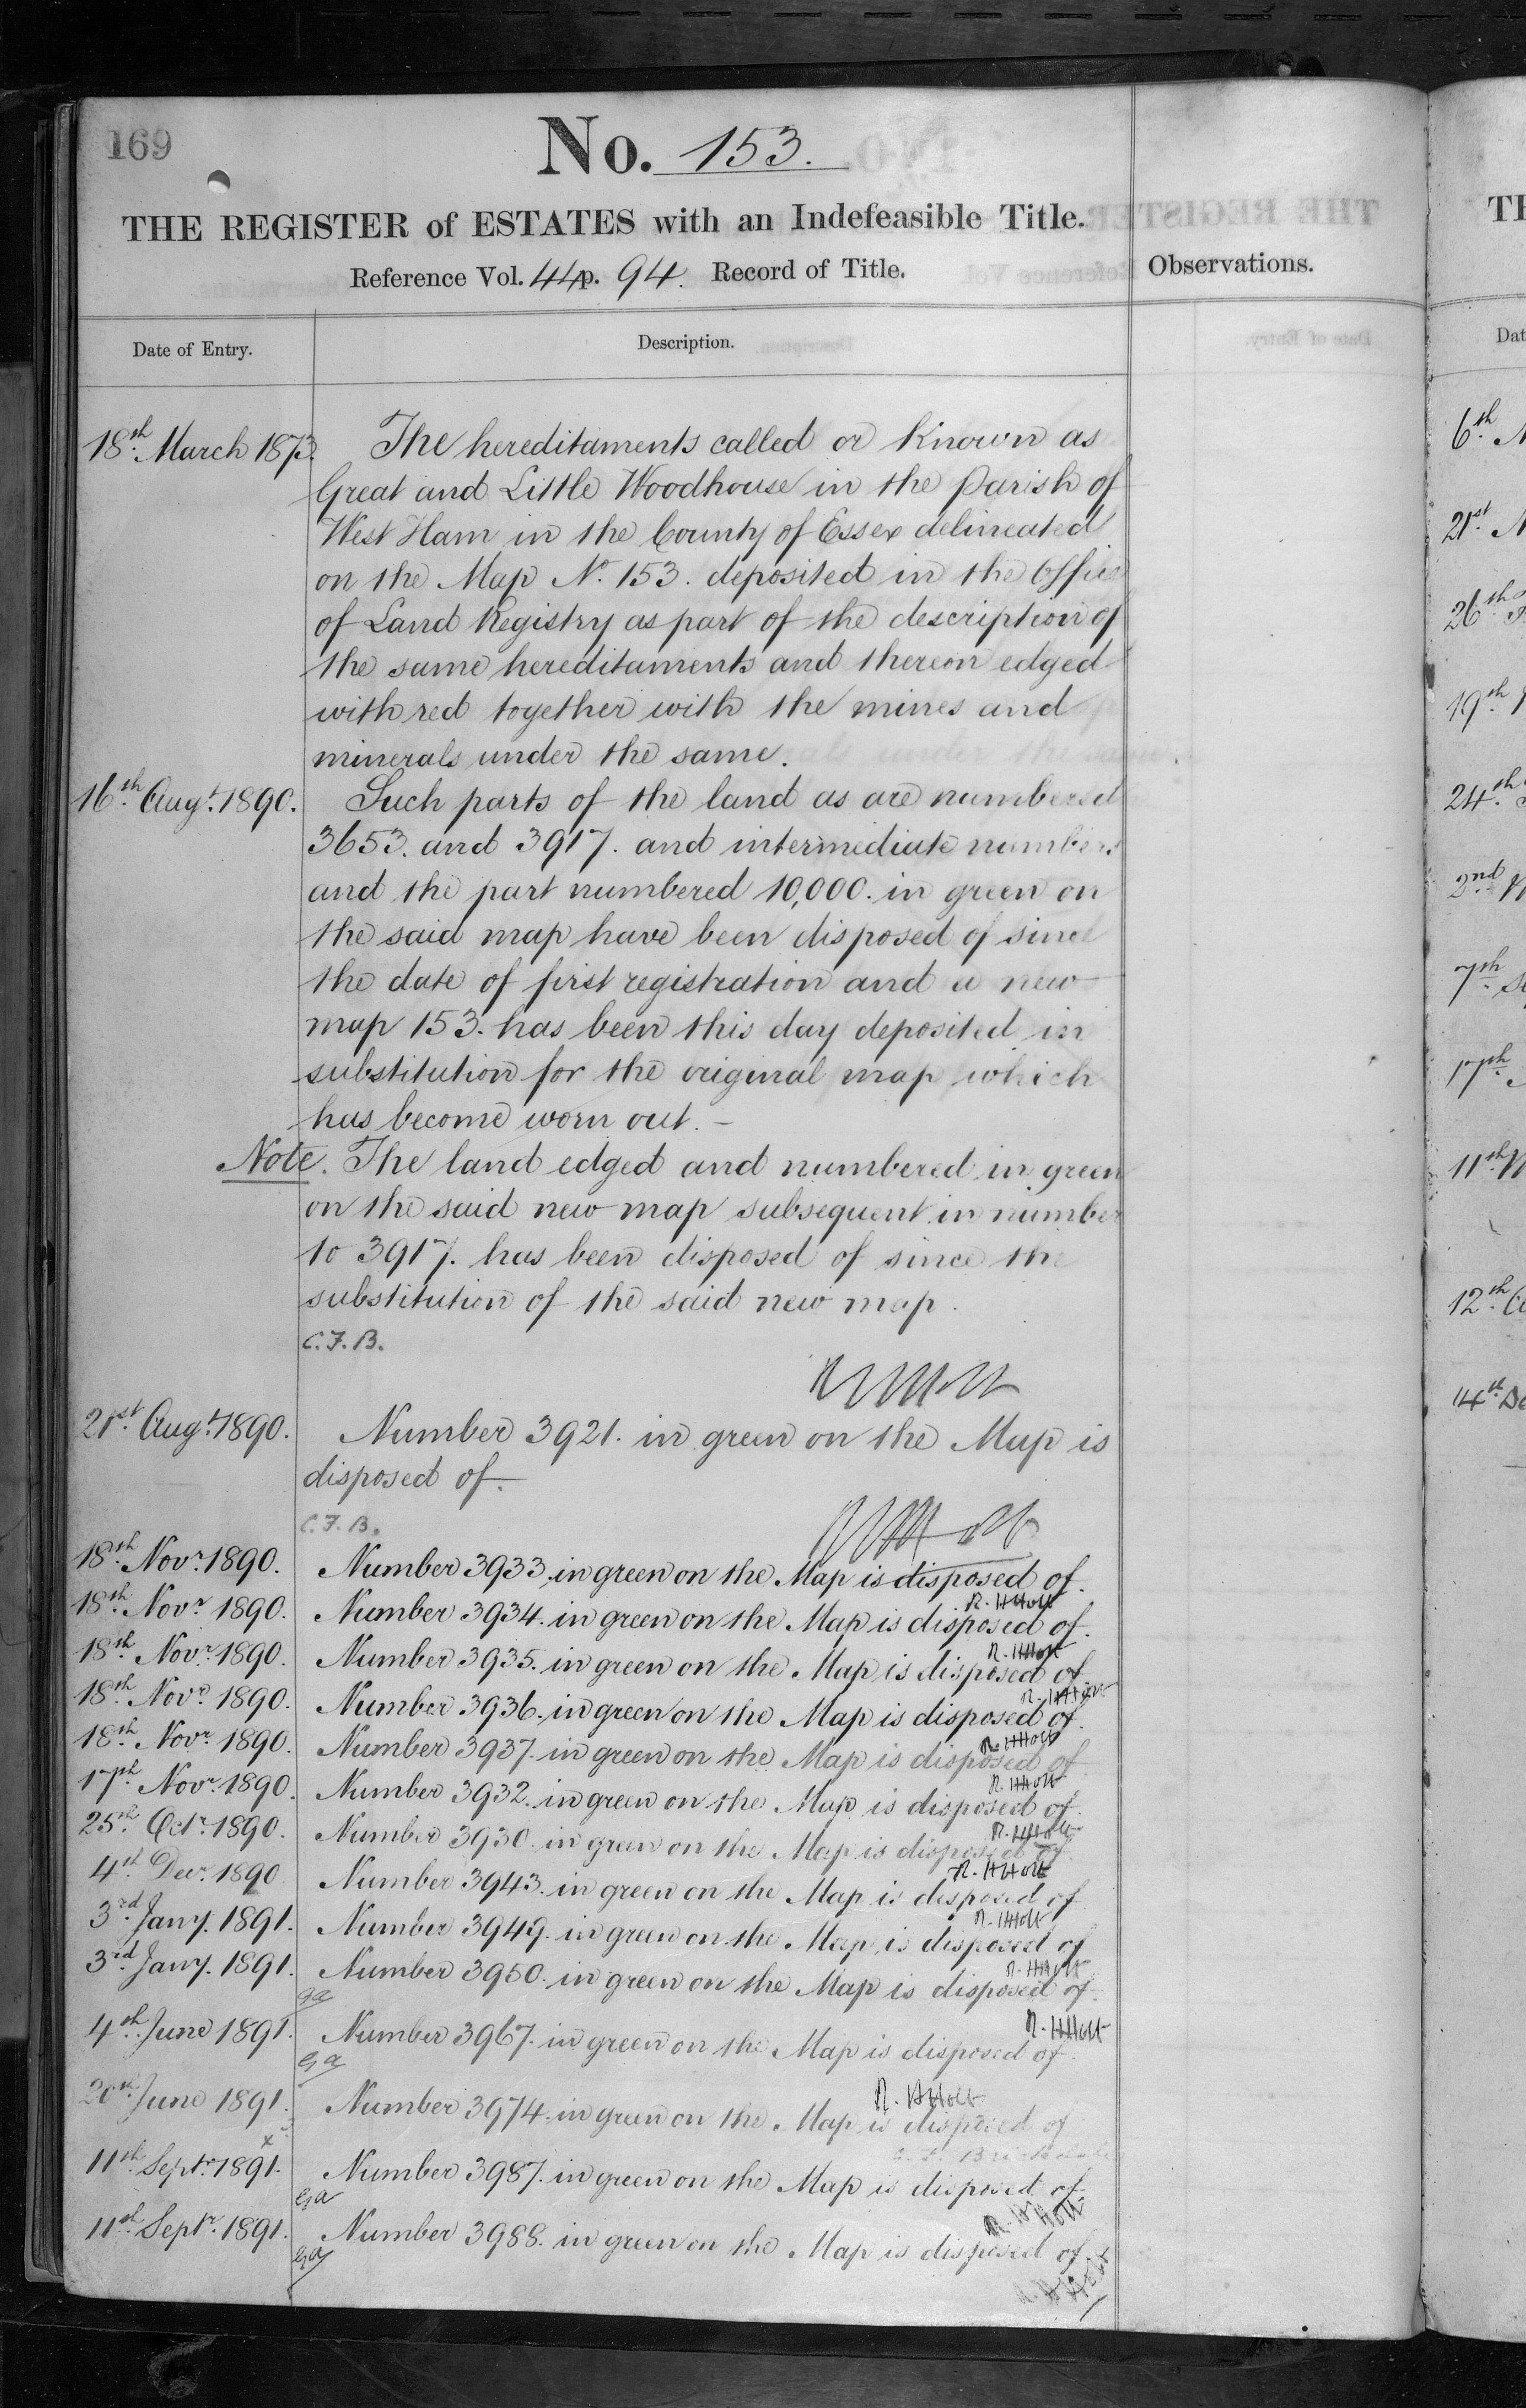 169
No. 153.
THE REGISTER of ESTATES with an Indefeasible Title.
Reference Vol. 44 p. 94. Record of Title.
Observations.
Date of Entry.
Description.
18th March 1873. The hereditaments called or known as
Great and Little Woodhouse in the Parish of
West Ham in the County of Essex delineated
on the Map No. 153. deposited in the Office
of Land Registry as part of the description of
the same hereditaments and thereon edged
with red together with the mines and
minerals under the same.
16th Augt. 1890. Such parts of the land as are numbered
3653. and 3917. and intermediate numbers
and the part numbered 10,000. in green on
the said map have been disposed of since
the date of first registration and a new
map 153. has been this day deposited in
substitution for the original map which
has become worn out. –
Note. The land edged and numbered in green
on the said new map subsequent in number
to 3917. has been disposed of since the
substitution of the said new map.
C.F.B.
21st Augt. 1890. Number 3921. in green on the Map is
disposed of.
C.F.B.
18th Novr. 1890. Number 3933. in green on the Map is disposed of.
R. H Holt
18th Novr. 1890. Number 3934. in green on the Map is disposed of.
R. H Holt
18th Novr. 1890. Number 3935. in green on the Map is disposed of.
R. H Holt
18th Novr. 1890. Number 3936. in green on the Map is disposed of.
R. H Holt
18th Novr. 1890. Number 3937. in green on the Map is disposed of
R. H Holt
17th Novr. 1890. Number 3932. in green on the Map is disposed of.
R. H Holt
25th Octr. 1890. Number 3930. in green on the Map is disposed of.
R. H Holt
4th Decr. 1890. Number 3943. in green on the Map is disposed of
R. H Holt
3rd Jany. 1891. Number 3949. in green on the Map is disposed of
R. H Holt
3rd Jany. 1891. Number 3950. in green on the Map is disposed of.
Ga
R. H Holt
4th June 1891. Number 3967. in green on the Map is disposed of.
Ga
R. H Holt
20th June 1891. Number 3974. in green on the Map is disposed of
11th Septr. 1891. Number 3987. in green on the Map is disposed of.
Ga
R. H Holt
11th Septr. 1891. Number 3988. in green on the Map is disposed of.
Ga
R. H Holt
TH
Dat
6th
21st
26th
19th
24th
2nd
7th
17th
11th
12th
14th De